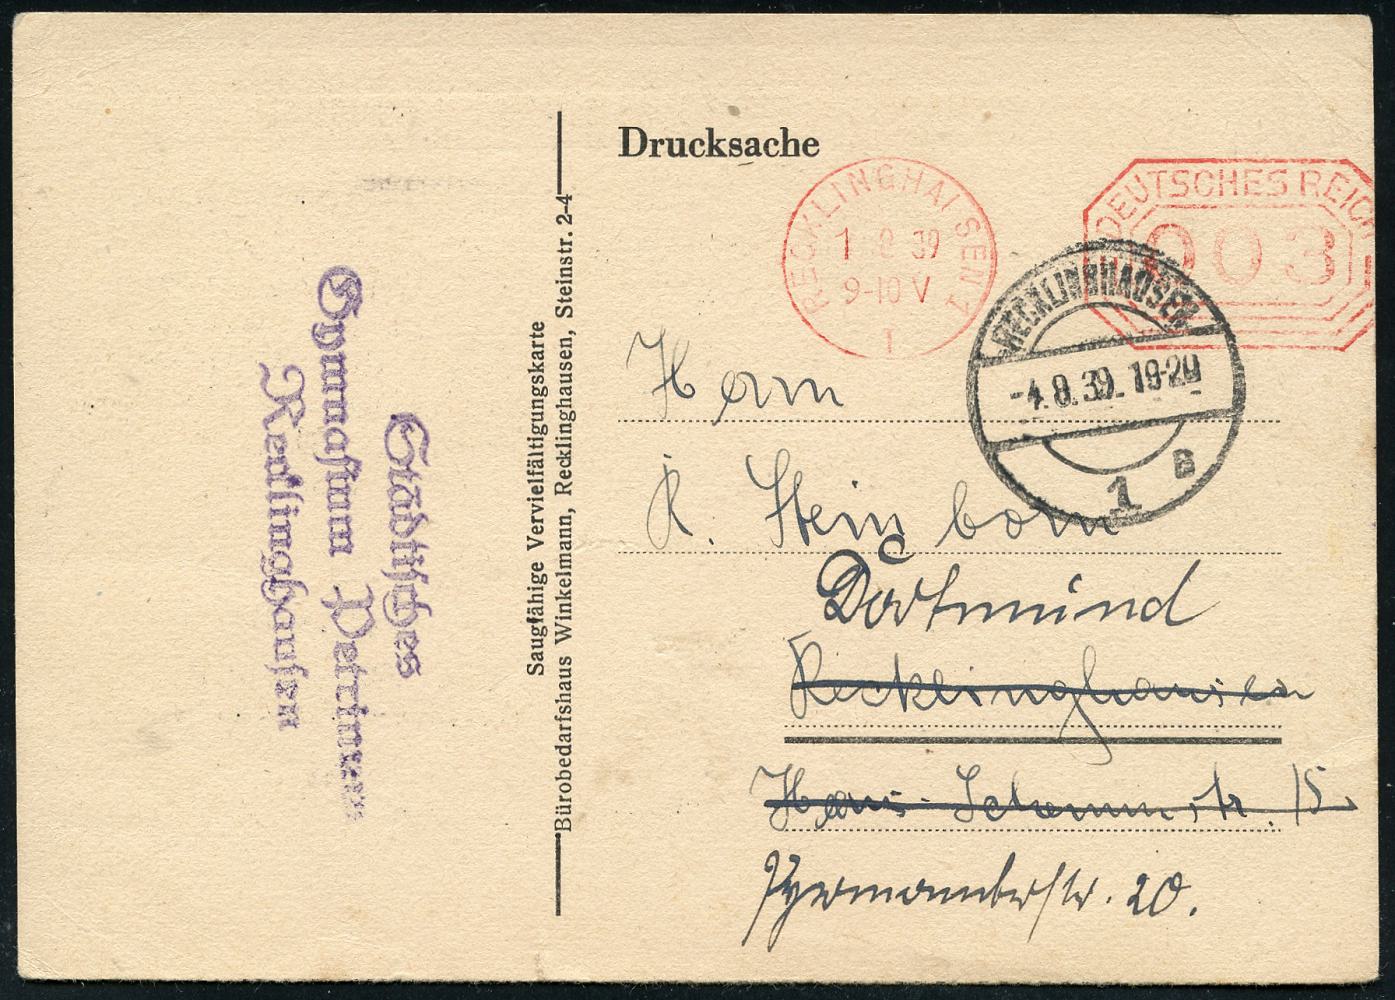 Drucksache
RECKLINGHAUSEN 1
1 8 39
9-10 V
1
DEUTSCHES REICH
003
RECKLINGHAUSEN
-4.8.39. 19-20
1 B
Herrn
R. Steinborn
Dortmund
Recklinghausen
Hans Schemmstr. 15
20.
Städtisches
Gymnasium Petrinum
Recklinghausen
Saugfähige Vervielfältigungskarte
Bürobedarfshaus Winkelmann, Recklinghausen, Steinstr. 2-4